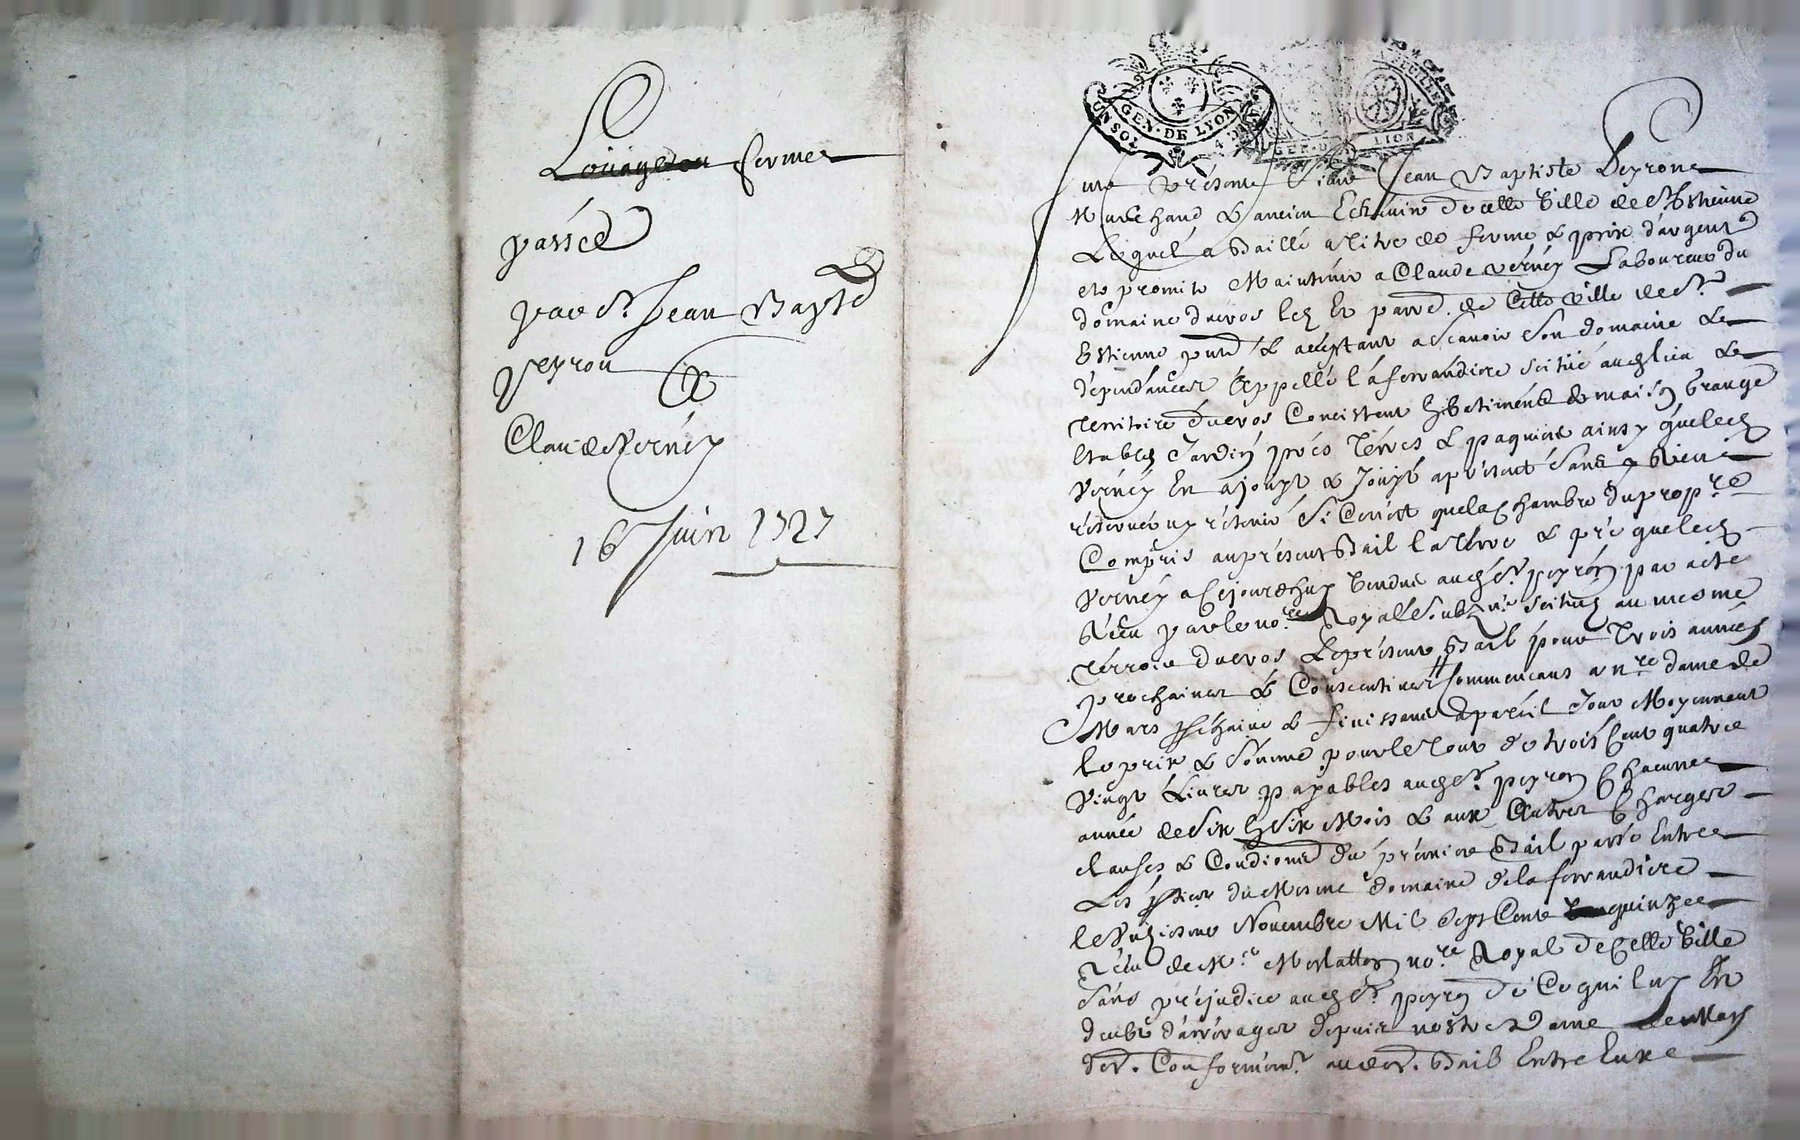 Louage ou ferme
passée
par Sr. Jean Bapte
peyron
&
Claude Verney
16 Juin 1727
GEN. DE LYON
UN SOL 4 D
GEN. D LION
FEUILLE
fut présent Sieur Jean Baptiste Peyron
Marchand & ancien Echevin de cette Ville de St Estienne
Lequel a Baillé a titre de ferme & prix d'argent
et promit Maintenir a Claude verney Laboureur du
domaine d'uevos lez Et parr. de Cette ville de St.
Estienne pnt & aceptant a scavoir son domaine &
dépendances Appellé la ferrandiere scitué aud lieu &
Territoire d'uevos Concistant En batiments de maison Grange
Etables Jardin prés Térres & paquiers ainsy que led
Verney En a jouyt & Jouyt a présent sans y Rien
réserver ny rétenir si Ce n'est que la Chambre du propre
Compris au présent Bail la Térre & pré que led
Verney a Cejourdhuy Vendus aud Sr. peyron par acte
Réçu par le nore. Royal soubzné. scitués au mesme
Térroir d'uevos Le présent Bail pour Trois années
prochaines & Consecutives Commencant a nre dame de
Mars prochaine & finissant a pareil Jour Moyennant
le prix & sómme pour le Tout de trois Cent quatre
Vingt Livres payables aud Sr. peyron Chacunne
année de six En six Mois & aux Autres Charges
clauses & Condions du prémier Bail passé Entre
Les parties du Mesme domaine de la ferrandiere
le Novembre Mil sept Cent quinze
Réçu de Mr. nore. Royal de Cette Ville
sans préjudice aud Sr. peyron de Ce qui luy Est
deub d'arrérages depuis nostre Dame de Mars
der. Conformémt. aud. Bail Entre Eux